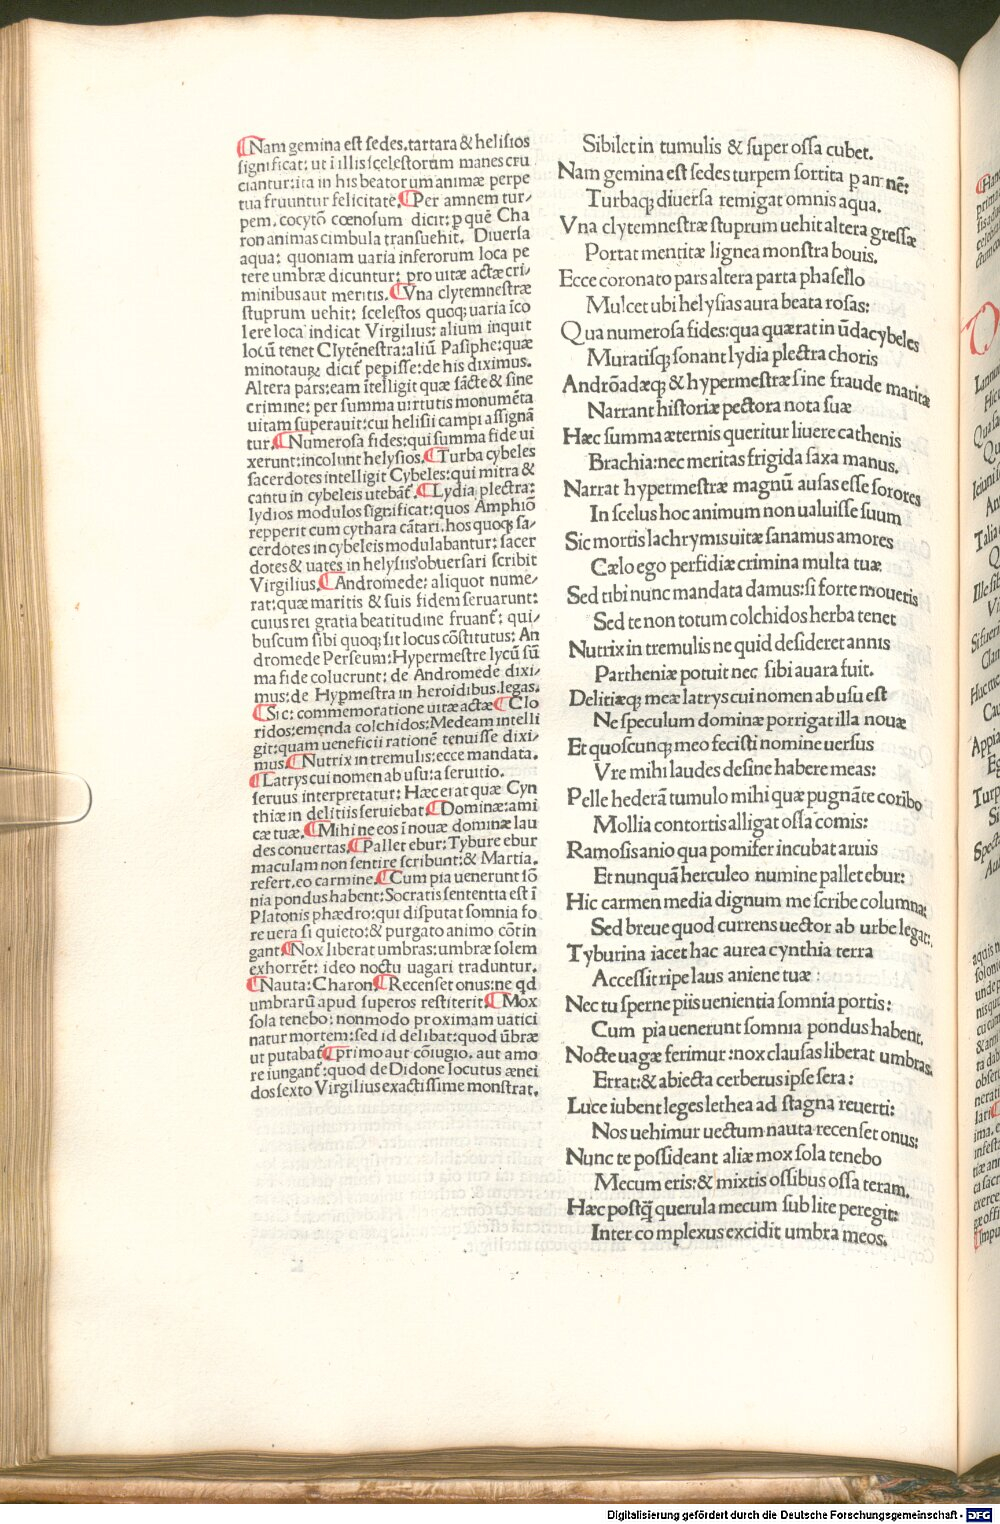 ¶Nam gemina est sedes.tartara & helisios
significat: ut ī illis scelestorum manes cru
ciantur:ita in his beatorum animæ perpe
tua fruuntur felicitate.¶Per amnem tur-
pem. cocytō cœnosum dicit: p quē Cha
ron animas cimbula transuehit. Diuersa
aqua: quoniam uaria inferorum loca pe
tere umbræ dicuntur: pro uitæ actæ cri/
minibus aut meritis.¶Vna clytemnestræ
stuprum uehit: scelestos quoqȝ uaria īco
lere loca indicat Virgilius: alium inquit
locū tenet Clytēnestra:aliū Pasiphe:quæ
minotauꝝ dicit̄ pepisse:de his diximus.
Altera pars:eam ītelligit quæ sācte & sine
crimine: per summa uirtutis monumēta
uitam superauit:cui helisii campi assignā
tur.¶Numerosa fides:qui summa fide ui
xerunt:incolunt helysios.¶Turba cybeles
sacerdotes intelligit Cybeles:qui mitra &
cantu in cybeleis utebāt̄.¶Lydia plectra:
lydios modulos significat:quos Amphiō
repperit cum cythara cātari.hos quoqȝ sa/
cerdotes in cybeleis modulabantur: sacer
dotes & uates in helysiis obuersari scribit
Virgilius.¶Andromede: aliquot nume/
rat:quæ maritis & suis fidem seruarunt:
cuius rei gratia beatitudine fruant̄: qui/
buscum sibi quoqȝ sit locus cōstitutus: An
dromede Perseum:Hypermestre lycū sū
ma fide colucrunt: de Andromede dixi/
mus:de Hypmestra in heroidibus legas.
¶Sic: commemoratione uitæ actæ¶Clo
ridos:emenda colchidos:Medeam intelli
git:quam ueneficii rationē tenuisse dixi/
mus.¶Nutrix in tremulis:ecce mandata.
¶Latrys cui nomen ab usu:a seruitio.
seruus interpretatur: Hæc erat quæ Cyn
thiæ in delitiis seruiebat¶Dominæ:ami
cæ tuæ.¶Mihi ne eos ī nouæ dominæ lau
des conuertas.¶Pallet ebur: Tybure ebur
maculam non sentire scribunt:& Martia.
refert.eo carmine.¶Cum pia uenerunt sō
nia pondus habent:Socratis sententia est ī
Platonis phædro:qui disputat somnia fo
re uera si quieto:& purgato animo cōtin
gant:¶Nox liberat umbras:umbræ solem
exhorrēt: ideo noctu uagari traduntur.
¶Nauta:Charon¶Recenset onus:ne qd
umbrarū apud superos restiterit¶Mox
sola tenebo: nonmodo proximam uatici
natur mortem:sed id delibat:quod ūbræ
ut putabat̄¶primo aut cōiugio. aut amo
re iungant̄:quod de Didone locutus ænei
dos sexto Virgilius exactissime monstrat.
Sibilet in tumulis & super ossa cubet.
Nam gemina est sedes turpem sortita p amnē:
Turbaqȝ diuersa remigat omnis aqua.
Vna clytemnestræ stuprum uehit altera gressæ
Portat mentitæ lignea monstra bouis.
Ecce coronato pars altera parta phasello
Mulcet ubi helysias aura beata rosas:
Qua numerosa fides:qua quærat in ūda cybeles
Muratisqȝ sonant lydia plectra choris
Andrōadæqȝ & hypermestræ sine fraude maritæ
Narrant historiæ pectora nota suæ
Hæc summa æternis queritur liuere cathenis
Brachia:nec meritas frigida saxa manus.
Narrat hypermestræ magnū ausas esse sorores
In scelus hoc animum non ualuisse suum
Sic mortis lachrymis uitæ sanamus amores
Cælo ego perfidiæ crimina multa tuæ
Sed tibi nunc mandata damus:si forte moueris
Sed te non totum colchidos herba tenet
Nutrix in tremulis ne quid desideret annis
Partheniæ potuit nec sibi auara fuit.
Delitiæqȝ meæ latrys cui nomen ab usu est
Ne speculum dominæ porrigat illa nouæ
Et quoscunqȝ meo fecisti nomine uersus
Vre mihi laudes desine habere meas:
Pelle hederā tumulo mihi quæ pugnāte coribo
Mollia contortis alligat ossa comis:
Ramosis anio qua pomifer incubat aruis
Et nunquā herculeo numine pallet ebur:
Hic carmen media dignum me scribe columna:
Sed breue quod currens uector ab urbe legat:
Tyburina iacet hac aurea cynthia terra
Accessit ripe laus aniene tuæ:
Nec tu sperne piis uenientia somnia portis:
Cum pia uenerunt somnia pondus habent.
Nocte uagæ ferimur:nox clausas liberat umbras.
Errat:& abiecta cerberus ipse sera:
Luce iubent leges lethea ad stagna reuerti:
Nos uehimur uectum nauta recenset onus:
Nunc te possideant aliæ mox sola tenebo
Mecum eris:& mixtis ossibus ossa teram.
Hæc postq̄ querula mecum sub lite peregit:
Inter complexus excidit umbra meos.
Digitalisierung gefördert durch die Deutsche Forschungsgemeinschaft - DFG